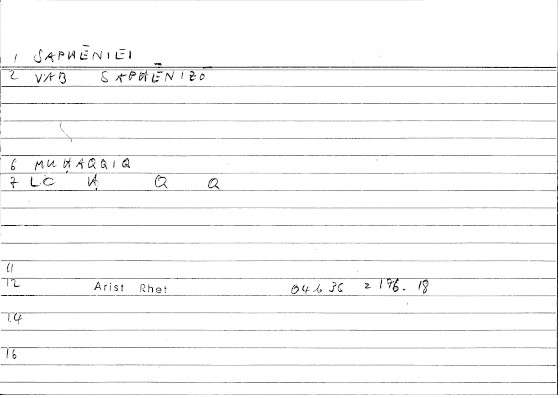 1 SAPHĒNIEI
2 VAB SAPHĒNIZŌ
6 MUḤAQQIQ
7 LC Ḥ Q Q
11
12 Arist Rhet 04b36 = 176.18
14
16